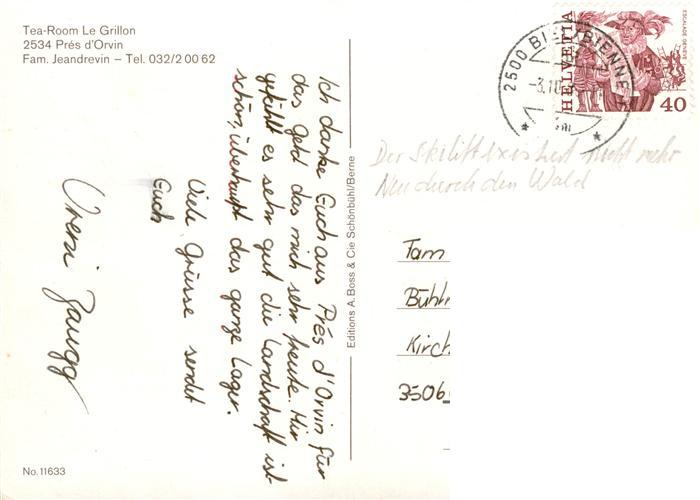 Tea-Room Le Grillon
2534 Prés d'Orvin
Fam. Jeandrevin – Tel. 032/2 00 62
Ich danke Euch aus Prés d'Orvin für
das Geld das mich sehr freute. Mir
gefählt es sehr gut die Landschaft ist
schön, überhaupt das ganze Lager.
Viele Grüsse sendet
Euch
Vreni Zaugg
No. 11633
Editions A. Boss & Cie Schönbühl/Berne
2500 BIEL-BIENNE 1
-3.10
HELVETIA
ESCALADE GENÈVE
40
Der Skilift existiert nicht mehr
Neu durch den Wald
Fam
Bühl
Kirch
3506